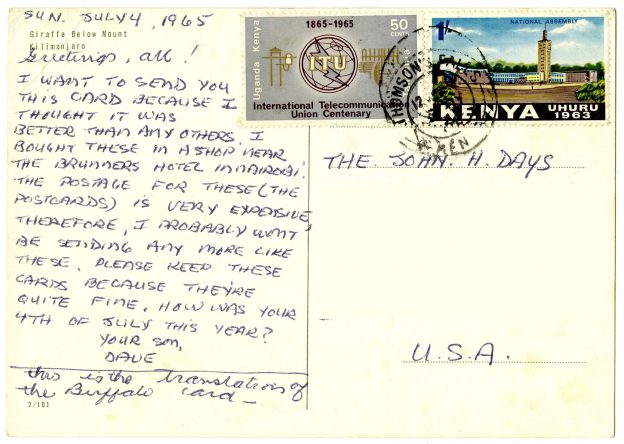 SUN. JULY 4, 1965
Giraffe Below Mount
Kilimanjaro
Greetings, all!
I WANT TO SEND YOU
THIS CARD BECAUSE I
THOUGHT IT WAS
BETTER THAN ANY OTHERS. I
BOUGHT THESE IN A SHOP NEAR
THE BRUNNERS HOTEL IN NAIROBI.
THE POSTAGE FOR THESE (THE
POSTCARDS) IS VERY EXPENSIVE,
THEREFORE, I PROBABLY WON'T
BE SENDING ANY MORE LIKE
THESE. PLEASE KEEP THESE
CARDS BECAUSE THEY'RE
QUITE FINE. HOW WAS YOUR
4TH OF JULY THIS YEAR?
YOUR SON,
DAVE
this is the translation of
the Buffalo card -
2/101
1865-1965
50
CENTS
Uganda Kenya
ITU
International Telecommunication
Union Centenary
1/-
NATIONAL ASSEMBLY
KENYA
UHURU
1963
THOMSON'S
FALLS
12
KEN
THE JOHN. H. DAYS
U.S.A.